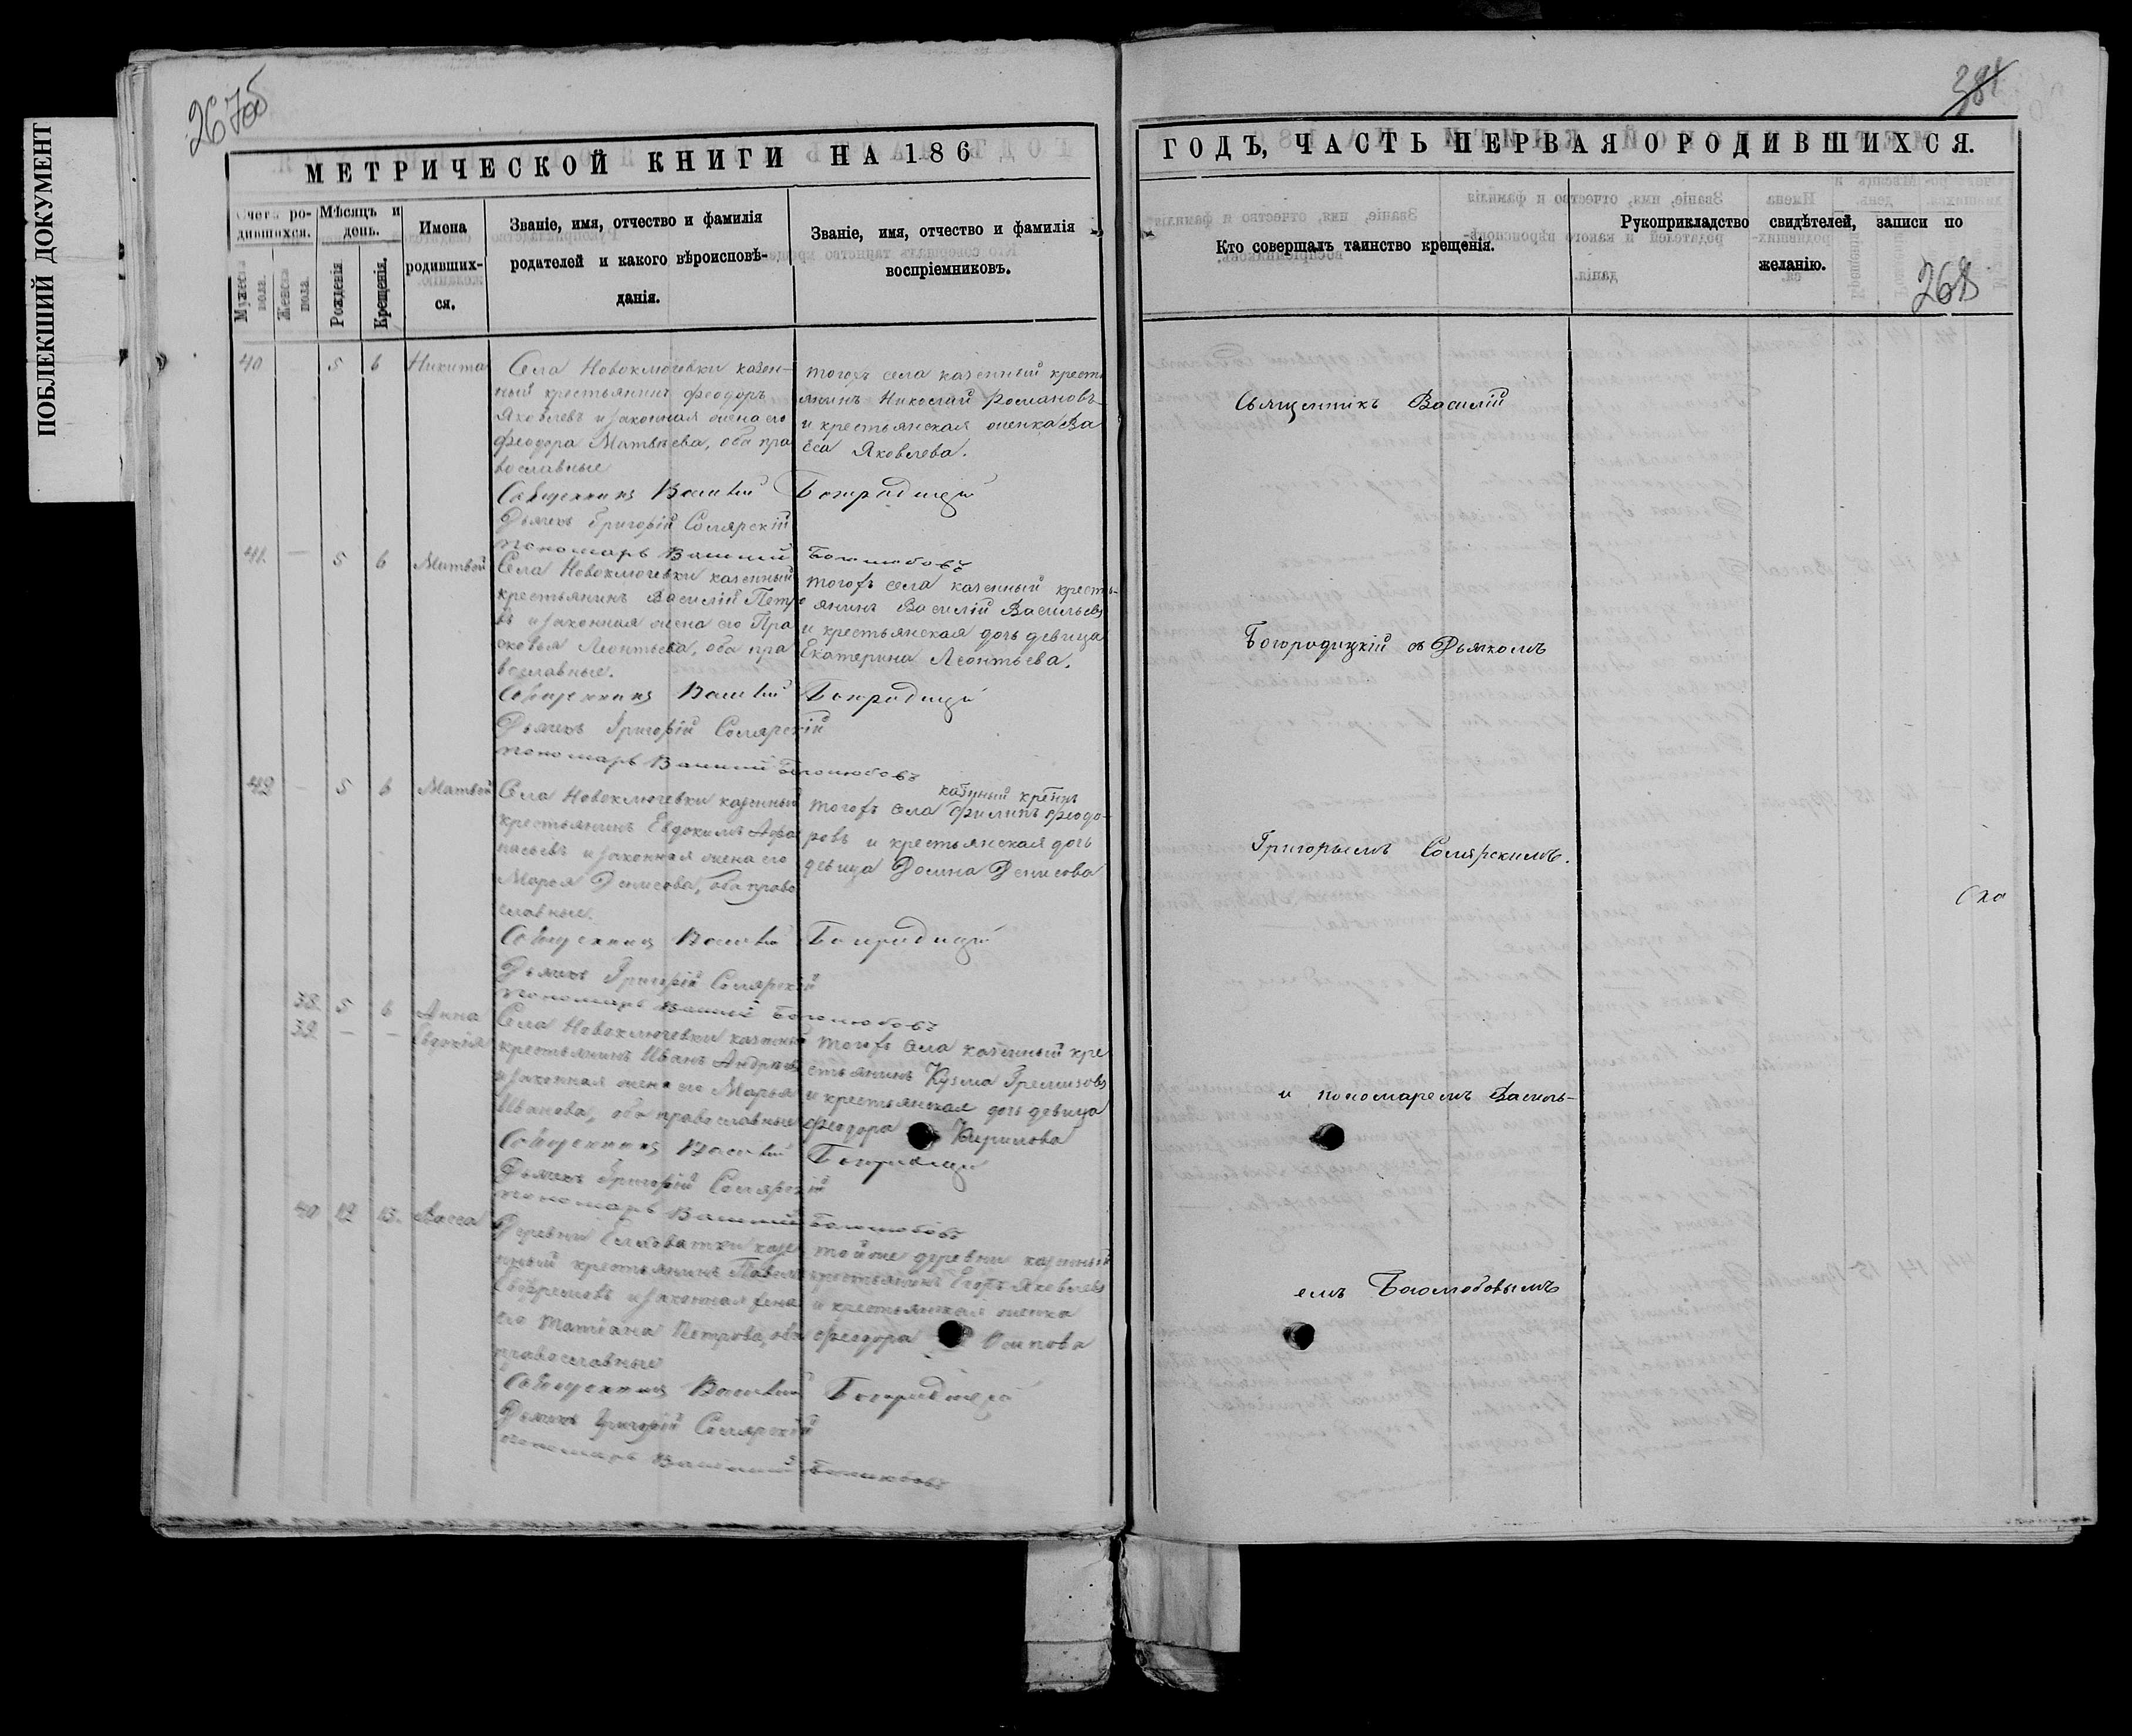 ПОБЛЕКШИЙ ДОКУМЕНТ
267об
МЕТРИЧЕСКОЙ КНИГИ НА 186
Счетъ ро-
дившихся.
Мѣсяцъ и
день.
Имена
родивших-
ся.
Званіе, имя, отчество и фамилія
родителей и какого вѣроисповѣ-
данія.
Званіе, имя, отчество и фамилія
воспріемниковъ.
Мужеска
пола.
Женска
пола.
Рожденія
Крещенія.
40 — 5 6 Никита
Села Новоключевки казен-
ный крестьянинъ Феодоръ
Яковлевъ и законная жена его
Феодора Матвѣева, оба пра
вославные
тогожъ села казенный кресть
янинъ Николай Романовъ
и крестьянская женка Ва
са Яковлева.
Священникъ Василій Богородицкій
Дьячекъ Григорій Солярскій
пономарь Василій Боголюбовъ
41. — 5 6 Матвей
Села Новоключевки казенный
крестьянинъ Василій Петро
въ и законная жена его Пра
сковья Леонтьева, оба пра
вославные.
тогожъ села казенный кресть-
янинъ Василій Васильевъ
и крестьянская дочь девица
Екатерина Леонтьева.
Священникъ Василій Богородицкій
Дьячекъ Григорій Солярскій
пономарь Василій Боголюбовъ
42 — 5 6 Матвей
Села Новоключевки казенный
крестьянинъ Евдокимъ Афа
насьевъ и законная жена его
Марья Денисова, оба право
славные.
тогожъ села Филипъ Феодо-
ровъ и крестьянская дочь
девица Домна Денисова
Священникъ Василій Богородицкій
Дьячекъ Григорій Солярскій
пономарь Василій Боголюбовъ
38. 5 6 Анна
39. — — Евдокія
Села Новоключевки казенный
крестьянинъ Иванъ Андреевъ
и законная жена его Марья
Иванова, оба православные
тогожъ села казенный кре
стьянинъ Кузма
и крестьянская дочь девица
Феодора Кирилова
Священникъ Василій Богородицкій
Дьячекъ Григорій Солярскій
пономарь Василій Боголюбовъ
40 12 13. Васса
Деревни казе
нный крестьянинъ Павелъ
и законная жена
его Татіана Петрова, оба
православные
тойже деревни казенный
крестьянинъ Егоръ Яковлевъ
и крестьянская женка
Феодора Осипова
Священникъ Василій Богородицкій
Дьячекъ Григорій Солярскій
пономарь Василій Боголюбовъ
381
ГОДЪ, ЧАСТЬ ПЕРВАЯ О РОДИВШИХСЯ.
Кто совершалъ таинство крещенія.
Рукоприкладство свидѣтелей, записи по
желанію.
268
Священникъ Василій
Богородицкій съ Дьячкомъ
Григорьемъ Солярскимъ.
и пономаремъ Василь-
емъ Боголюбовымъ